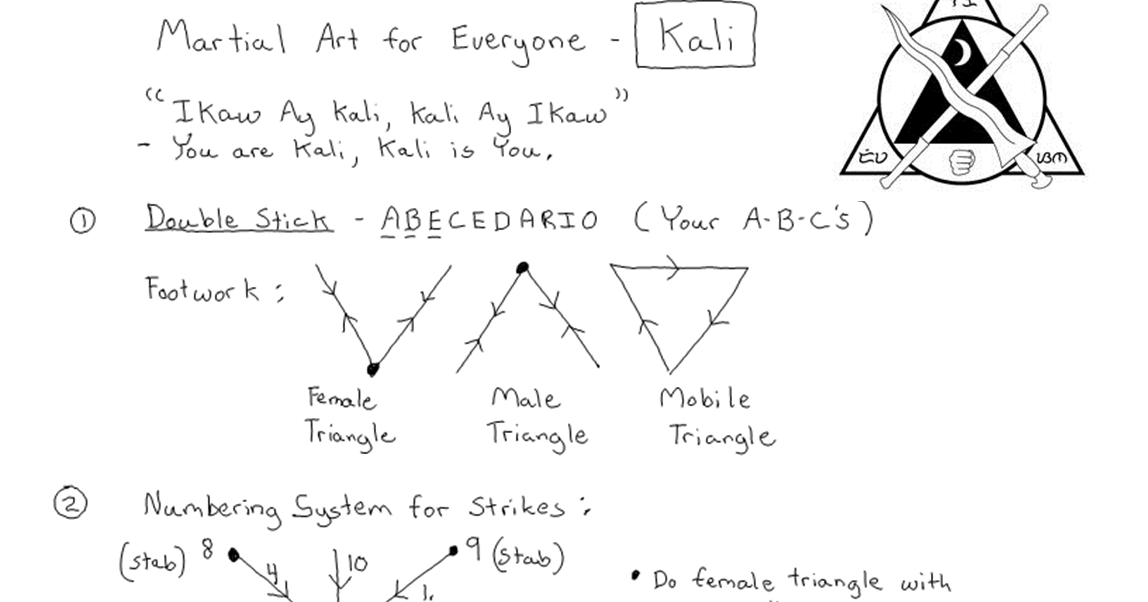 Martial Art for Everyone - Kali
"Ikaw Ay Kali, Kali Ay Ikaw"
- You are Kali, Kali is You.
① Double Stick - ABECEDARIO (Your A-B-C's)
Footwork:
Female Triangle
Male Triangle
Mobile Triangle
② Numbering System for Strikes:
(stab) 8
4
10
9 (stab)
• Do female triangle with